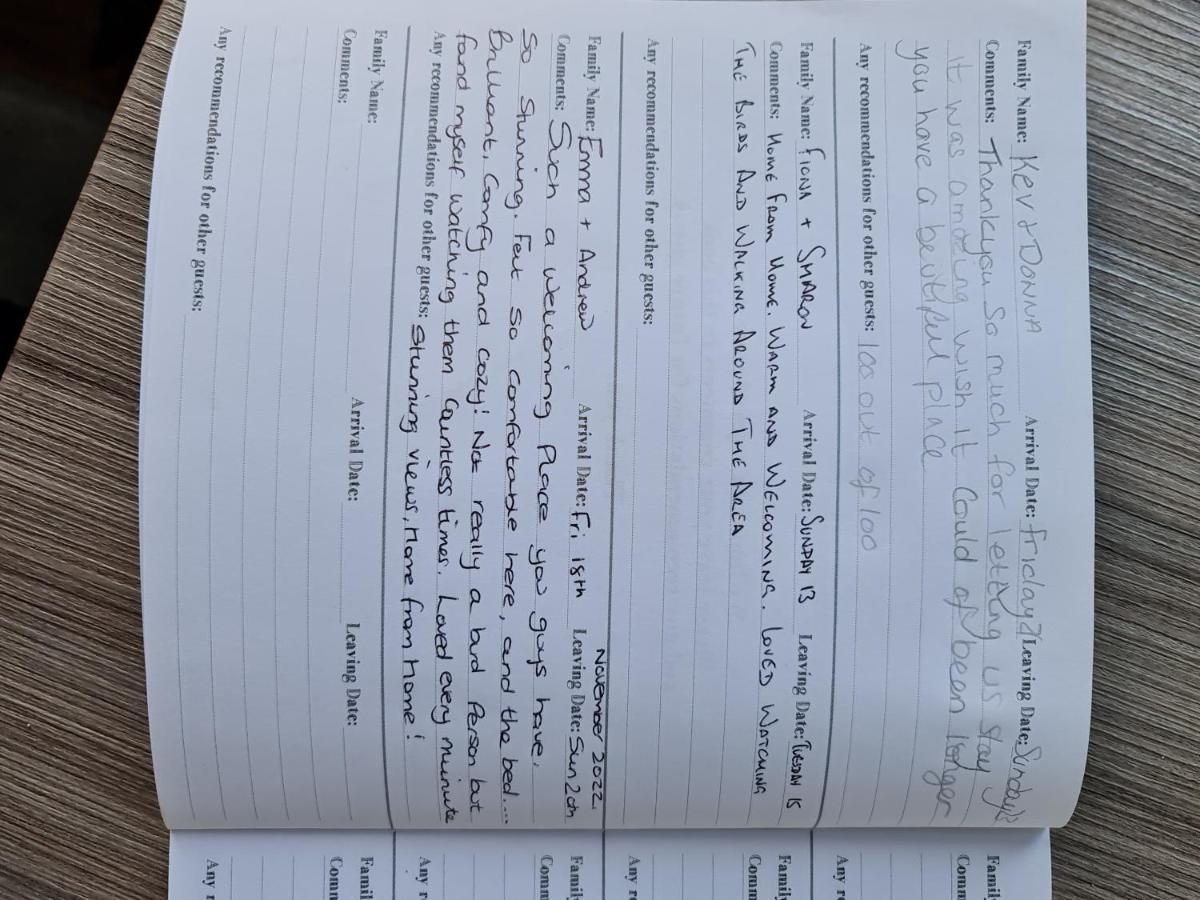 Family Name: Kev + DONNA Arrival Date: friday Leaving Date: Sunday
Comments: Thankyou So much for letting us stay
it was amazing wish it could of been lodger
you have a beutifull place
Any recommendations for other guests: 100 out of 100
Family Name: FIONA + SHARON Arrival Date: SUNDAY 13 Leaving Date: TUESDAY 15
Comments: HOME FROM HOME. WARM AND WELCOMING. LOVED WATCHING
THE BIRDS AND WALKING AROUND THE AREA
Any recommendations for other guests:
November 2022
Family Name: Emma + Andrew Arrival Date: Fri 18th Leaving Date: Sun 20th
Comments: Such a welcoming place you guys have,
So stunning. Felt so comfortable here, and the bed....
Brilliant, comfy and cozy! Not really a bird person but
found myself watching them countless times. Loved every muinute
Any recommendations for other guests: Stunning views, Home from home!
Family Name: Arrival Date: Leaving Date:
Comments:
Any recommendations for other guests:
Famil
Comm
Any re
Famil
Comm
Any r
Family
Comm
Any r
Famil
Comm
Any r